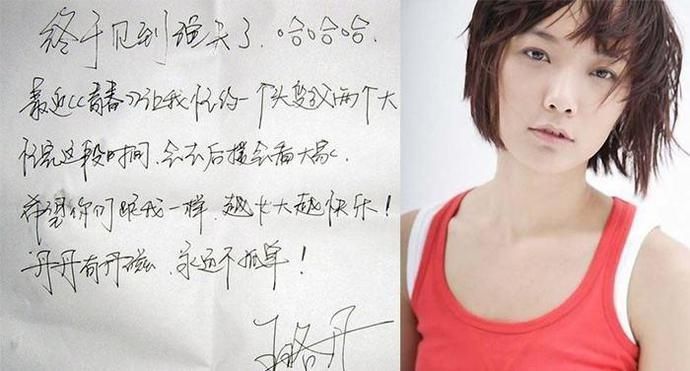 终于见到头了.哈哈哈.
最近《青春》让我忙的一个头变成两个大
忙完这段时间,会去后援会看大家.
希望你们跟我一样,越长大越快乐!
丹丹有丹磁,永远不孤单!
王珞丹